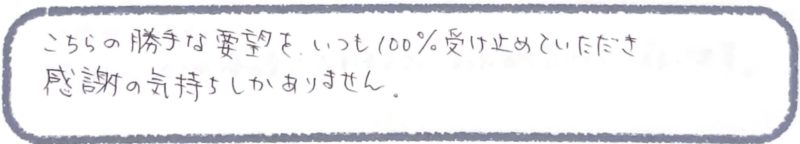 こちらの勝手な要望を、いつも100%受け止めていただき
感謝の気持ちしかありません。